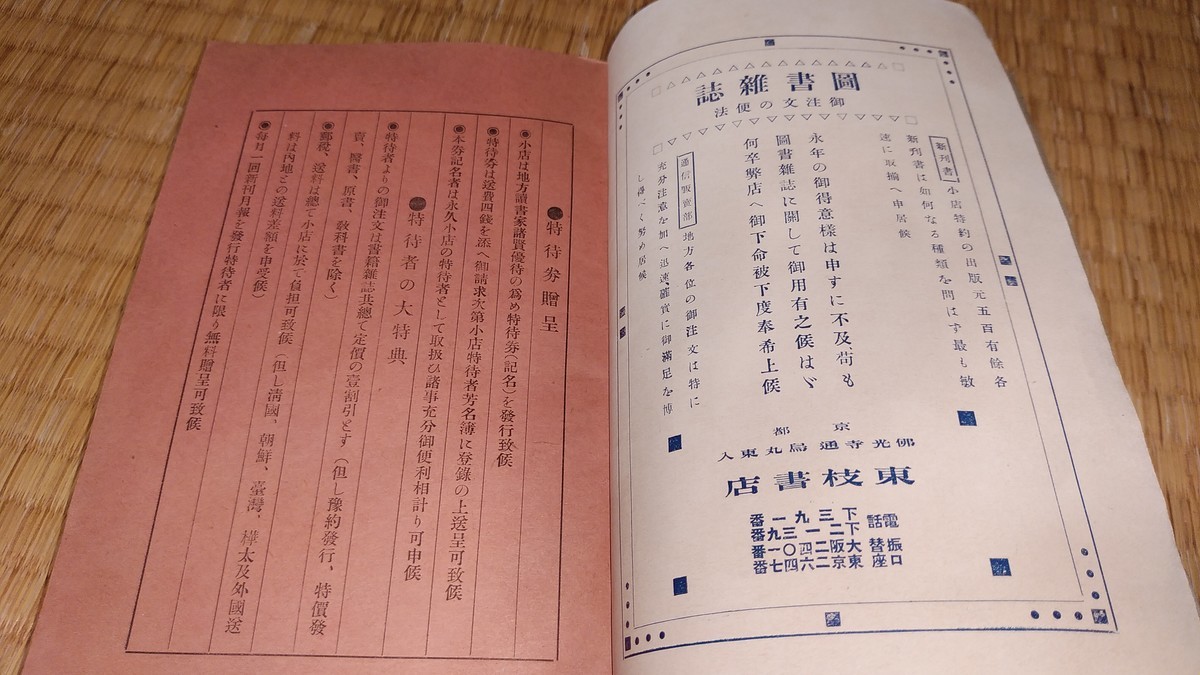 圖書雜誌
御注文の便法
新刊書 小店特約の出版元五百有餘各
新刊書は如何なる種類を問はず最も敏
速に取揃へ申居候
永年の御得意樣は申すに不及、苟も
圖書雜誌に關して御用有之候はゞ
何卒弊店へ御下命被下度奉希上候
通信販賣部 地方各位の御注文は特に
充分注意を加へ迅速、確實に御滿足を博
し得べく努め居候
京都
佛光寺通烏丸東入
東枝書店
電話 下三九一番
下二一三九番
振替口座 大阪二四〇一番
東京二六四七番
●特待券贈呈
◉小店は地方讀書家諸賢優待の爲め特待券(記名)を發行致候
◉特待券は送費四錢を添へ御請求次第小店特待者芳名簿に登錄の上送呈可致候
◉本券記名者は永久小店の特待者として取扱ひ諸事充分御便利相計り可申候
●特待者の大特典
◉特待者よりの御注文は書籍雜誌共總て定價の壹割引とす(但し豫約發行、特價發
賣、醫書、原書、敎科書を除く)
◉郵稅、送料は總て小店に於て負担可致候(但し淸國、朝鮮、臺灣、樺太及外國送
料は內地との送料差額を申受候)
◉每月一回新刊月報を發行特待者に限り無料贈呈可致候